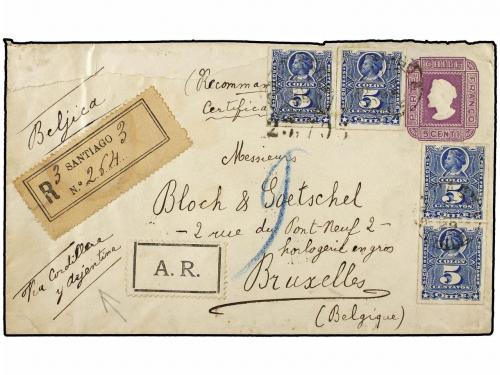 COLON 5 CENTAVOS CHILE
COLON 5 CENTAVOS CHILE
CHILE
PORTE FRANCO
5 CENTS
Beljica
(Recomman
Certifica
R 3 SANTIAGO 3
N.o 264.
Messieurs
Bloch & Goetschel
- 2 rue du Pont-Neuf 2 -
horlogerie en gros
Bruxelles
(Belgique)
Via Cordillera
y Argentina
A. R.
9
COLON 5 CENTAVOS CHILE
COLON 5 CENTAVOS CHILE